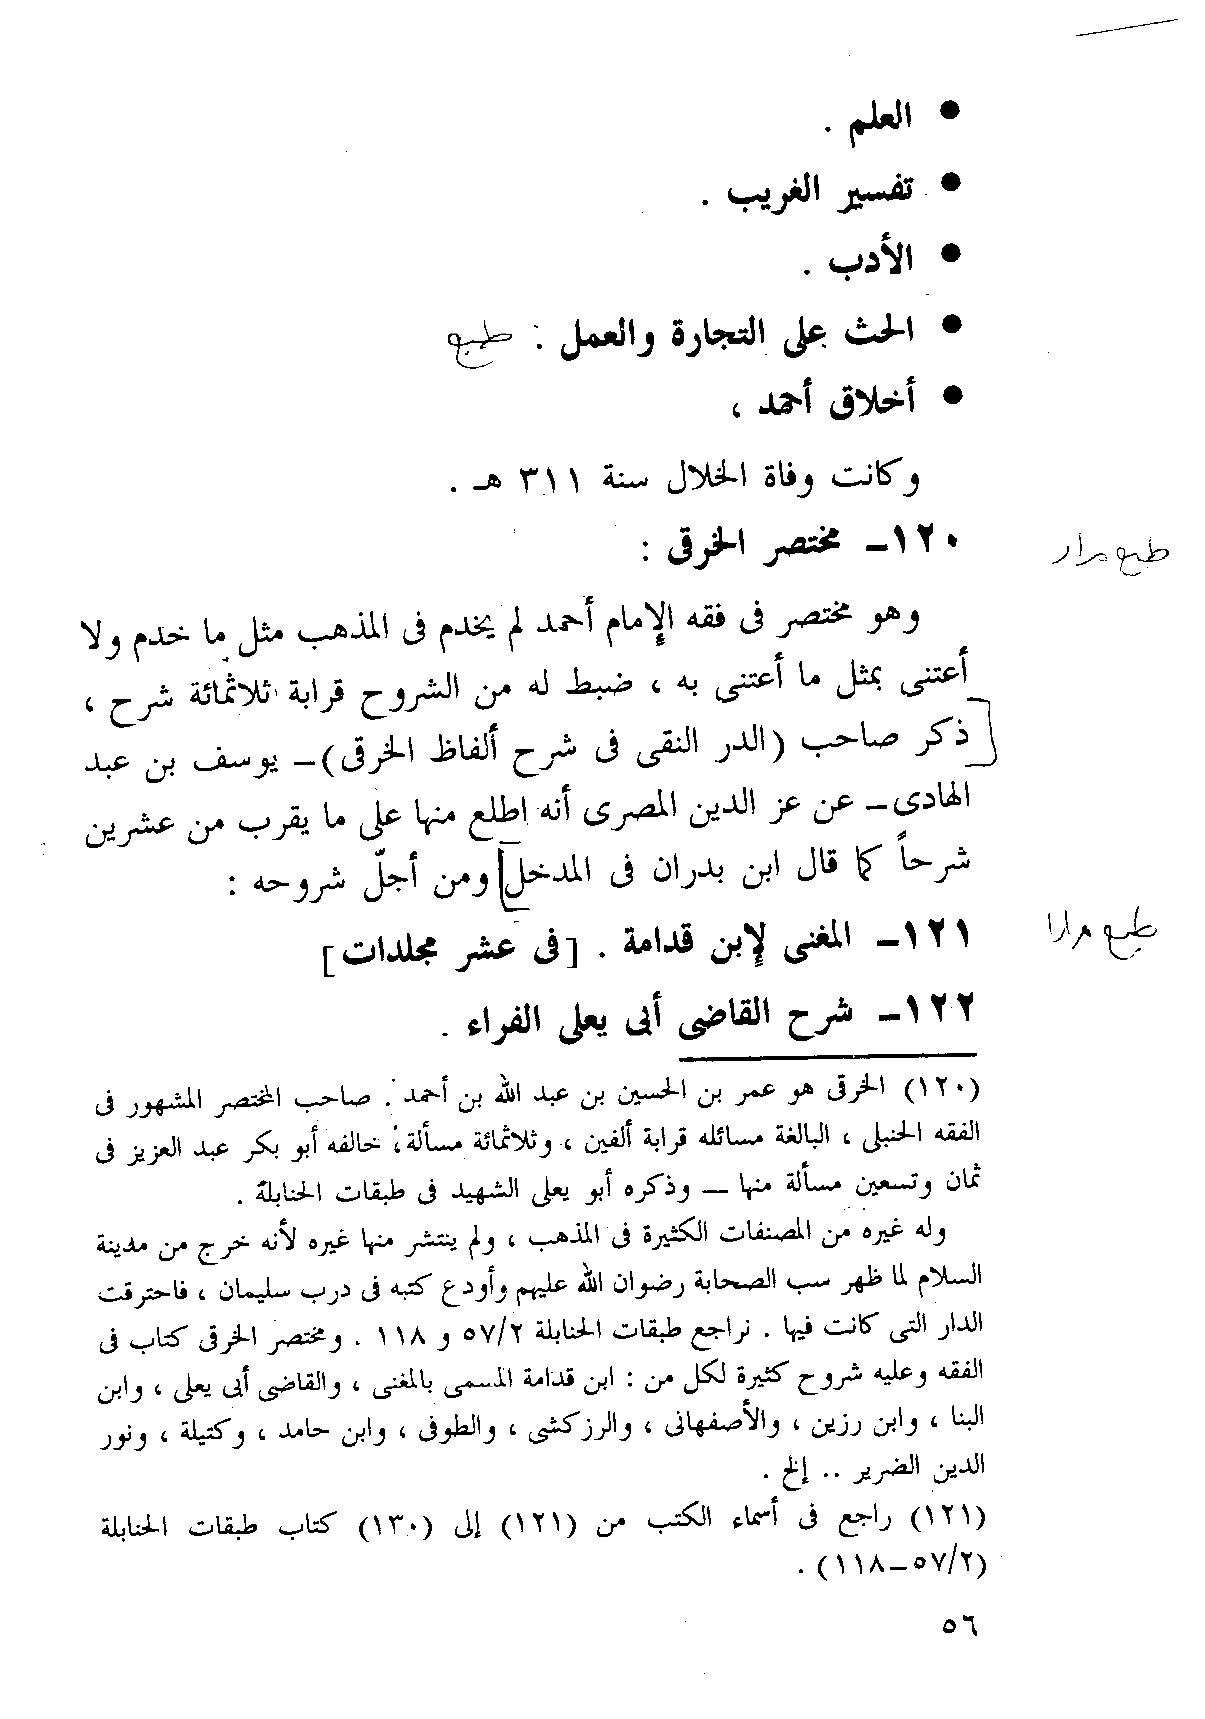 ● العلم .
● تفسير الغريب .
● الأدب .
● الحث على التجارة والعمل : طبع
● أخلاق أحمد ،
وكانت وفاة الخلال سنة ٣١١ هـ .
١٢٠ـ مختصر الخرقى :
طبع مرار
وهو مختصر فى فقه الإمام أحمد لم يخدم فى المذهب مثل ما خدم ولا
أعتنى بمثل ما أعتنى به ، ضبط له من الشروح قرابة ثلاثمائة شرح ،
[ذكر صاحب (الدر النقى فى شرح ألفاظ الخرقى)ـ يوسف بن عبد
الهادى ـ عن عز الدين المصرى أنه اطلع منها على ما يقرب من عشرين
شرحاً كما قال ابن بدران فى المدخل] ومن أجلّ شروحه :
١٢١ـ المغنى لإبن قدامة . [فى عشر مجلدات]
طبع مرارا
١٢٢ـ شرح القاضى أبى يعلى الفراء .
(١٢٠) الخرقى هو عمر بن الحسين بن عبد الله بن أحمد . صاحب المختصر المشهور فى
الفقه الحنبلى ، البالغة مسائله قرابة ألفين ، وثلاثمائة مسألة؛ خالفه أبو بكر عبد العزيز فى
ثمان وتسعين مسألة منها ـ وذكره أبو يعلى الشهيد فى طبقات الحنابلة .
وله غيره من المصنفات الكثيرة فى المذهب ، ولم ينتشر منها غيره لأنه خرج من مدينة
السلام لما ظهر سب الصحابة رضوان الله عليهم وأودع كتبه فى درب سليمان ، فاحترقت
الدار التى كانت فيها . نراجع طبقات الحنابلة ٥٧/٢ و ١١٨ . ومختصر الخرقى كتاب فى
الفقه وعليه شروح كثيرة لكل من : ابن قدامة المسمى بالمغنى ، والقاضى أبى يعلى ، وابن
البنا ، وابن رزين ، والأصفهانى ، والرزكشى ، والطوفى ، وابن حامد ، وكتيلة ، ونور
الدين الضرير .. إلخ .
(١٢١) راجع فى أسماء الكتب من (١٢١) إلى (١٣٠) كتاب طبقات الحنابلة
(٥٧/٢ـ١١٨) .
٥٦